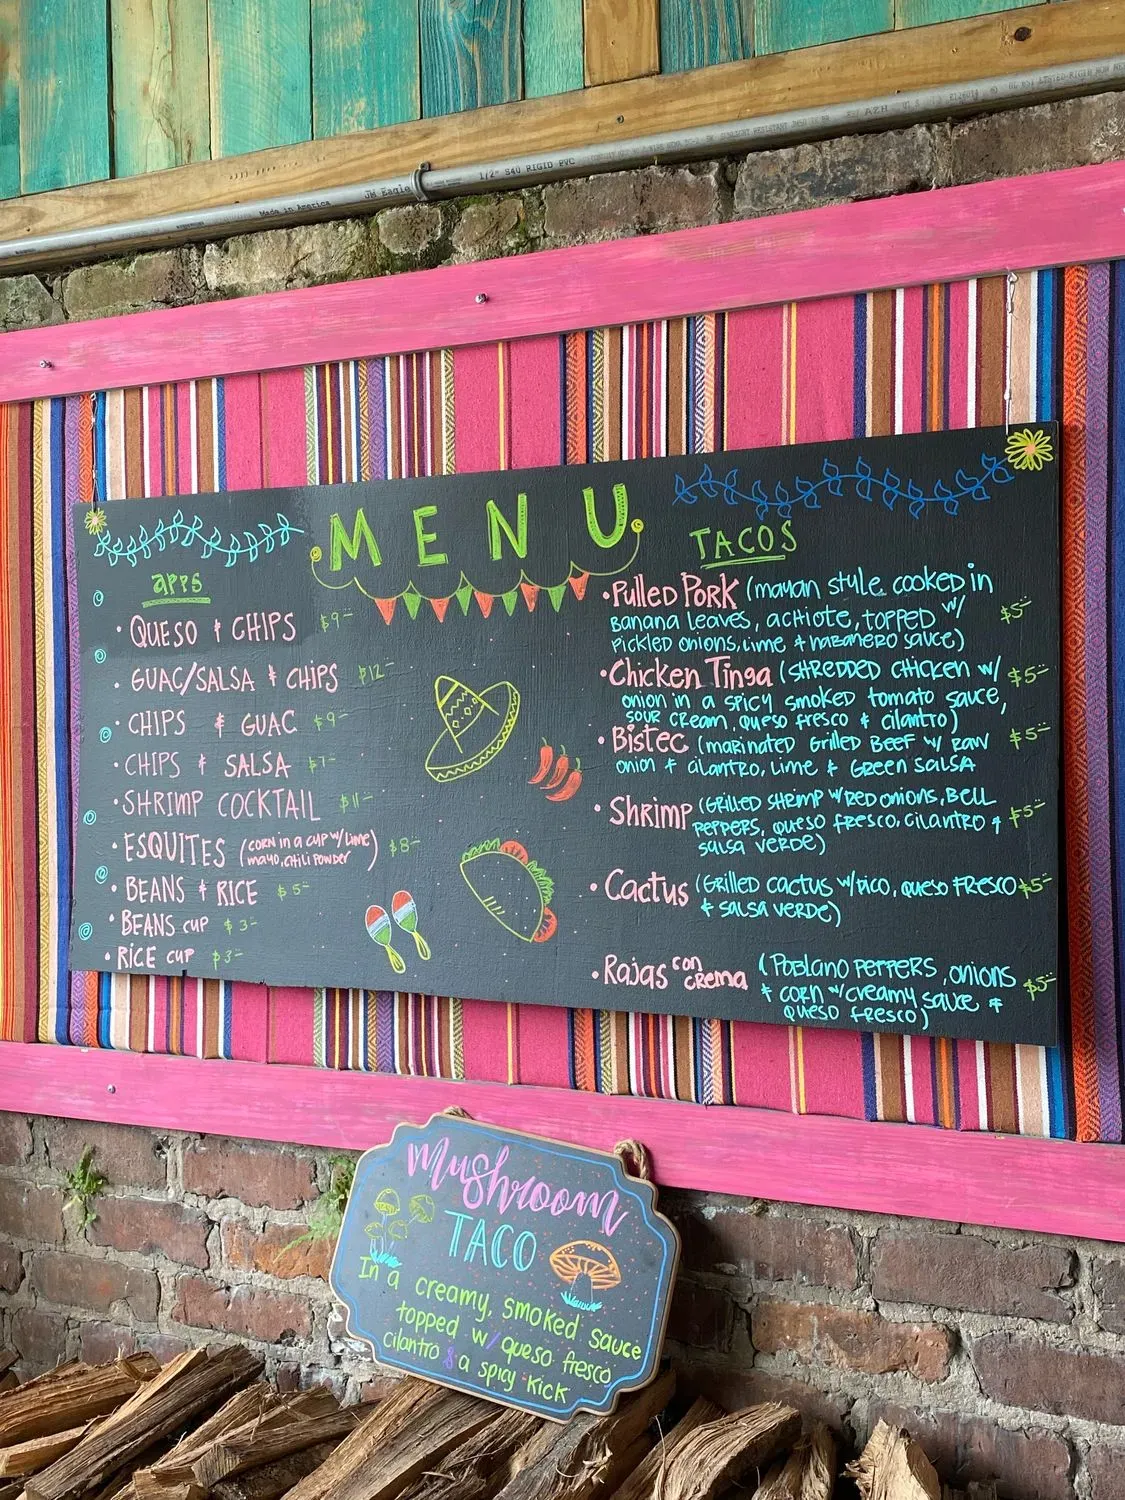 JM Eagle
Made in America
1/2" S40 RIGID PVC
MENU
APPS
• QUESO & CHIPS $9-
• GUAC/SALSA & CHIPS $12-
• CHIPS & GUAC $9-
• CHIPS & SALSA $7-
• SHRIMP COCKTAIL $11-
• ESQUITES (CORN IN A CUP W/ LIME, $8-
MAYO, CHILI POWDER)
• BEANS & RICE $5-
• BEANS CUP $3-
• RICE CUP $3-
TACOS
• Pulled Pork (mayan style cooked in
Banana Leaves, achiote, topped w/ $5-
pickled onions, lime & habanero sauce)
• Chicken Tinga (shredded chicken w/ $5-
onion in a spicy smoked tomato sauce,
sour cream, queso fresco & cilantro)
• Bistec (marinated grilled beef w/ raw $5-
onion & cilantro, lime & green salsa
• Shrimp (Grilled shrimp w/ red onions, bell $5-
peppers, queso fresco, cilantro &
salsa verde)
• Cactus (Grilled cactus w/ pico, queso fresco $5-
& salsa verde)
• Rajas con crema (Poblano peppers, onions $5-
& corn w/ creamy sauce &
queso fresco)
Mushroom
TACO
In a creamy, smoked sauce
topped w/ queso fresco
cilantro & a spicy kick